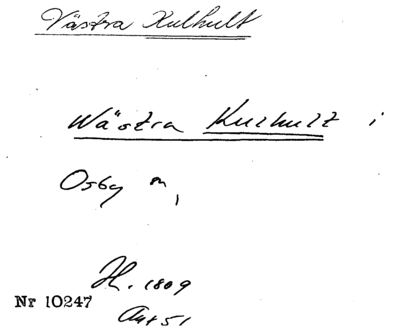 Västra Kulhult
Wästra Kulhult i
Osby
H. 1809
Nr 10247